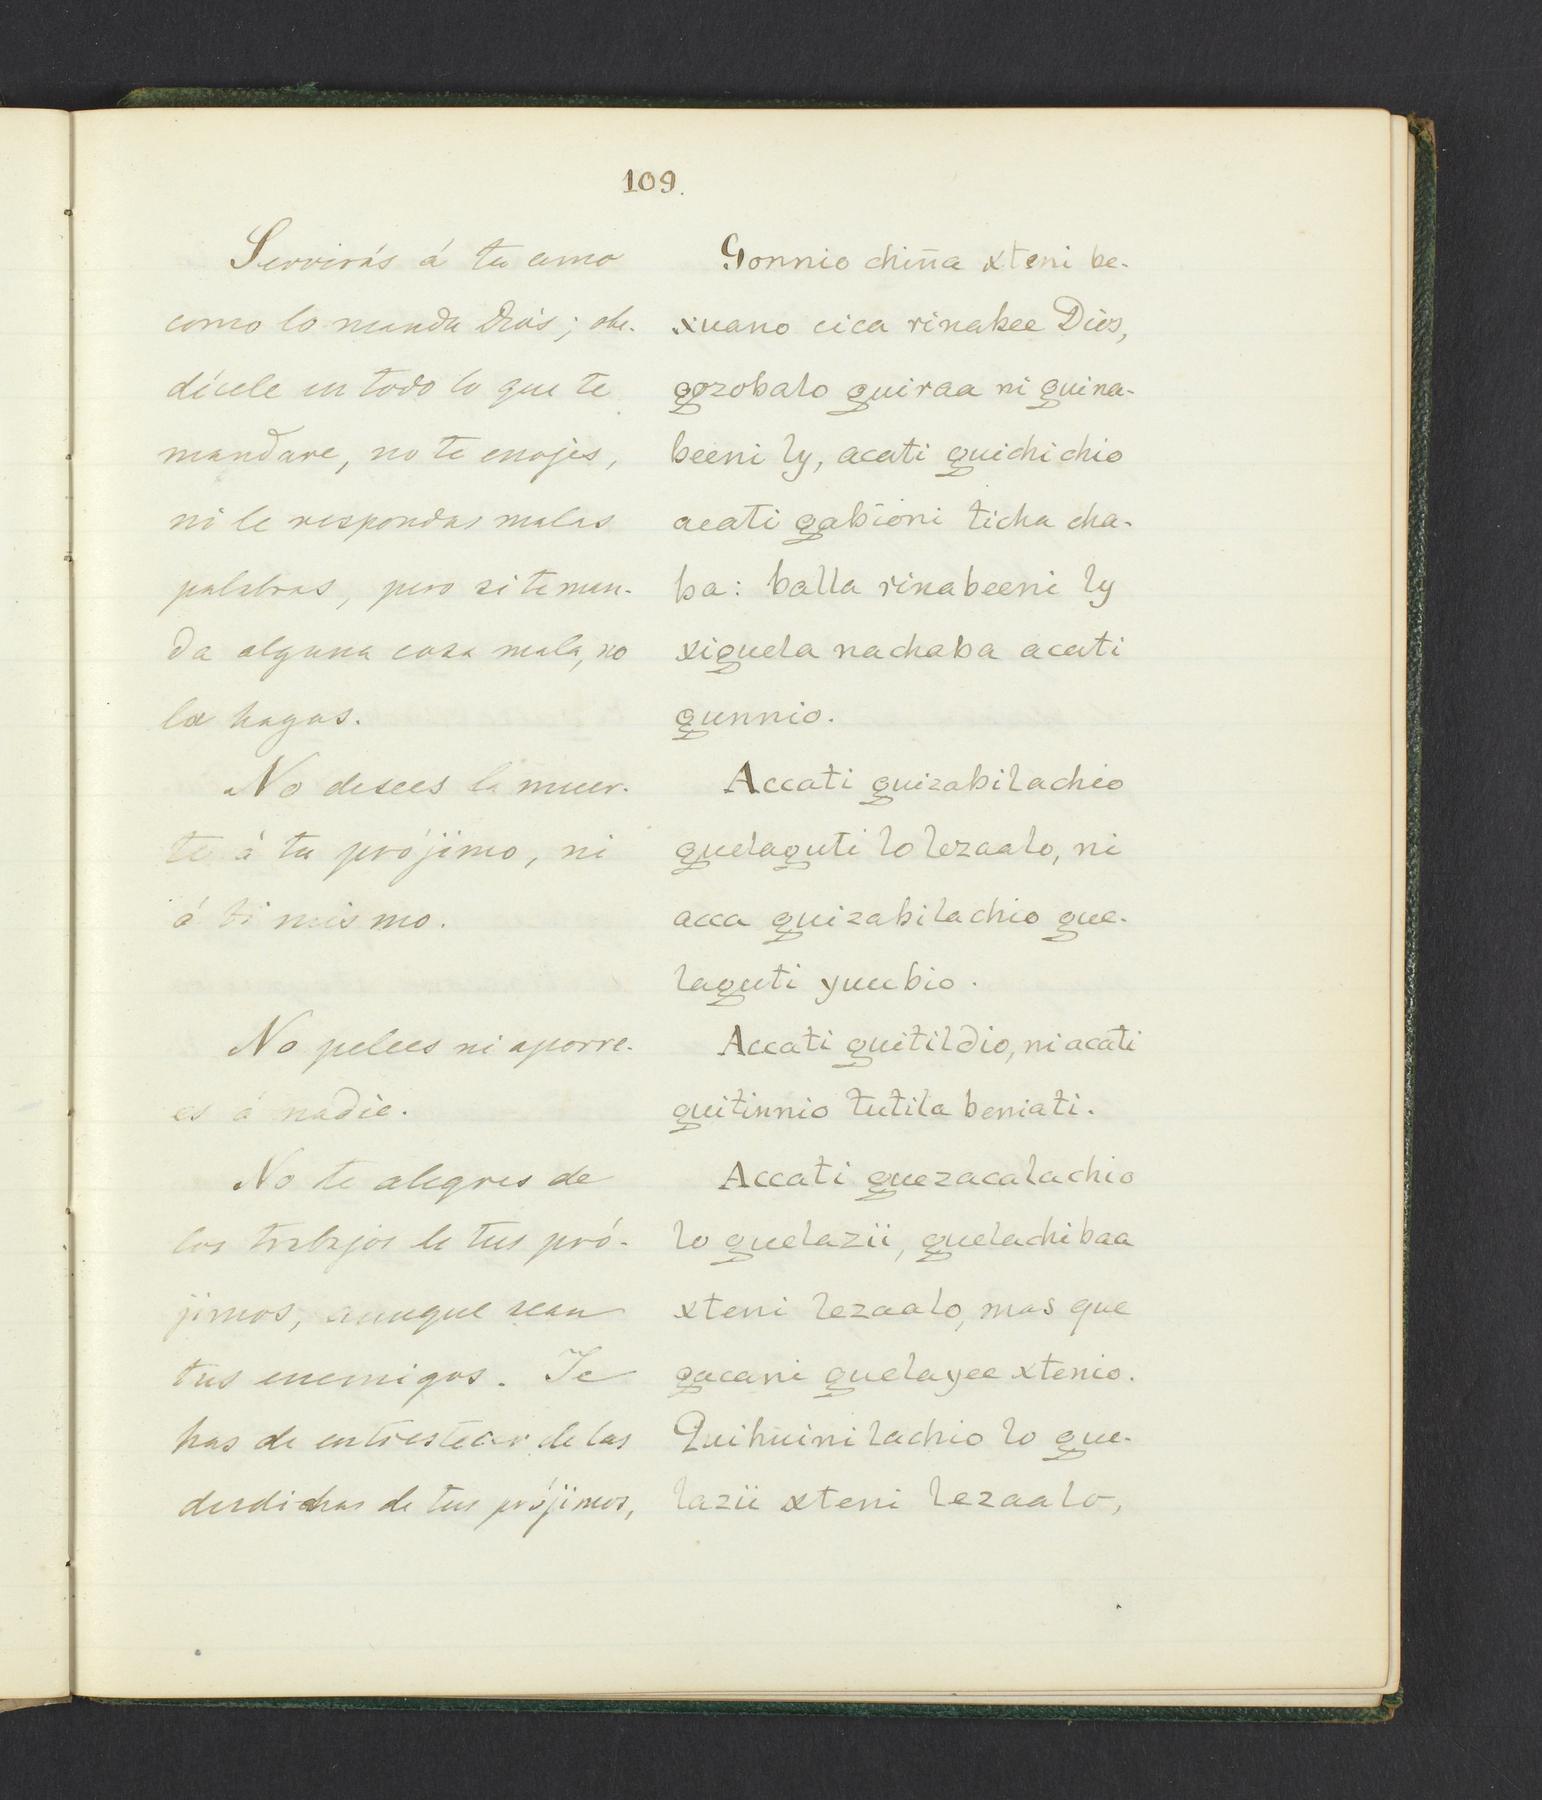 109.
Servirás á tu amo
como lo manda Dios; obe-
décele en todo lo que te
mandare, no te enojes,
ni le respondas malas
palabras, pero si te man-
da alguna cosa mala, no
la hagas.
No desees la muer-
te á tu prójimo, ni
á ti mismo.
No pelees ni aporre-
es á nadie.
No te alegres de
los trabajos de tus pró-
jimos, aunque sean
tus enemigos. Te
has de entristecer de las
desdichas de tus prójimos,
Gonnio chiñna xteni be-
xuano cica rinabee Dios,
gozobalo guiraa ni guina-
beeni ly, acati guichichio
acati gabioni ticha cha-
ba: balla rinabeeni ly
xiguela nachaba acati
gunnio.
Accati guizabilachio
guelaguti lo lezaalo, ni
acca guizabilachio gue-
laguti yuubio.
Accati guitildio, ni acati
guitinnio tutila beniati.
Accati guezacalachio
lo guelazii, guelachibaa
xteni lezaalo, mas que
gacani guelayee xtenio.
Quihuini lachio lo gue-
lazii xteni lezaalo,